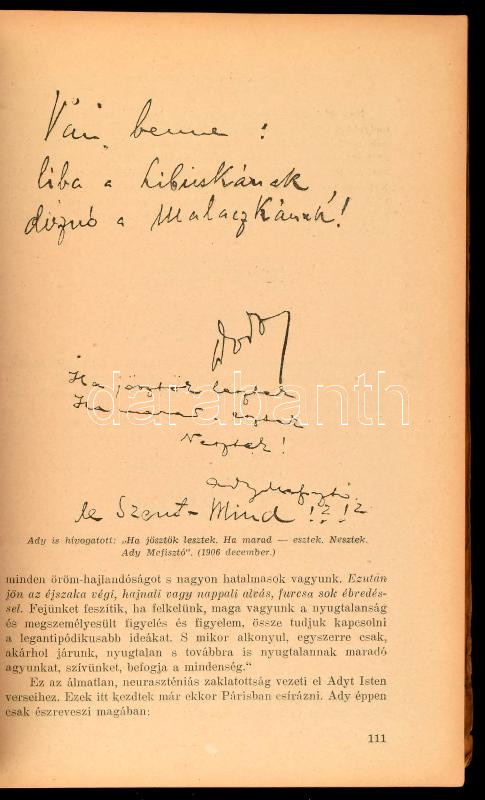 Vár benne:
liba a Libuskának,
disznó a Malaczkának!
Dodó
Ha jösztök lesztek
Ha marad - esztek
Nesztek!
Ady Mefisztó
le Szent-Mind !?!?
darabanth
Ady is hívogatott: „Ha jösztök lesztek. Ha marad — esztek. Nesztek.
Ady Mefisztó". (1906 december.)
minden öröm-hajlandóságot s nagyon hatalmasok vagyunk. Ezután
jön az éjszaka végi, hajnali vagy nappali alvás, furcsa sok ébredés-
sel. Fejünket feszítik, ha felkelünk, maga vagyunk a nyugtalanság
és megszemélyesült figyelés és figyelem, össze tudjuk kapcsolni
a legantipódikusabb ideákat. S mikor alkonyul, egyszerre csak,
akárhol járunk, nyugtalan s továbbra is nyugtalannak maradó
agyunkat, szívünket, befogja a mindenség."
Ez az álmatlan, neuraszténiás zaklatottság vezeti el Adyt Isten
verseihez. Ezek itt kezdtek már ekkor Párisban csírázni. Ady éppen
csak észreveszi magában:
111